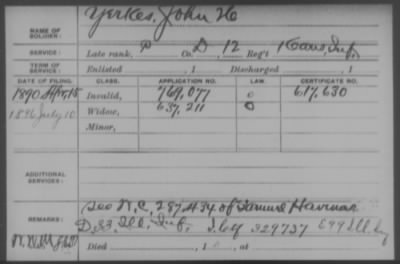 NAME OF SOLDIER: Yerkes, John H
SERVICE: Late rank, P Co. D, 12 Reg't Kans. Inf.
TERM OF SERVICE: Enlisted , 1 Discharged , 1
DATE OF FILING. CLASS. APPLICATION NO. LAW. CERTIFICATE NO.
1890 Invalid, 769,077 617,630
1896 July 10 Widow, 637,211
Minor,
ADDITIONAL SERVICES:
See W.C. 287,434 of Samuel
REMARKS: D, 33 Ill. Inf.
Died , 1 , at